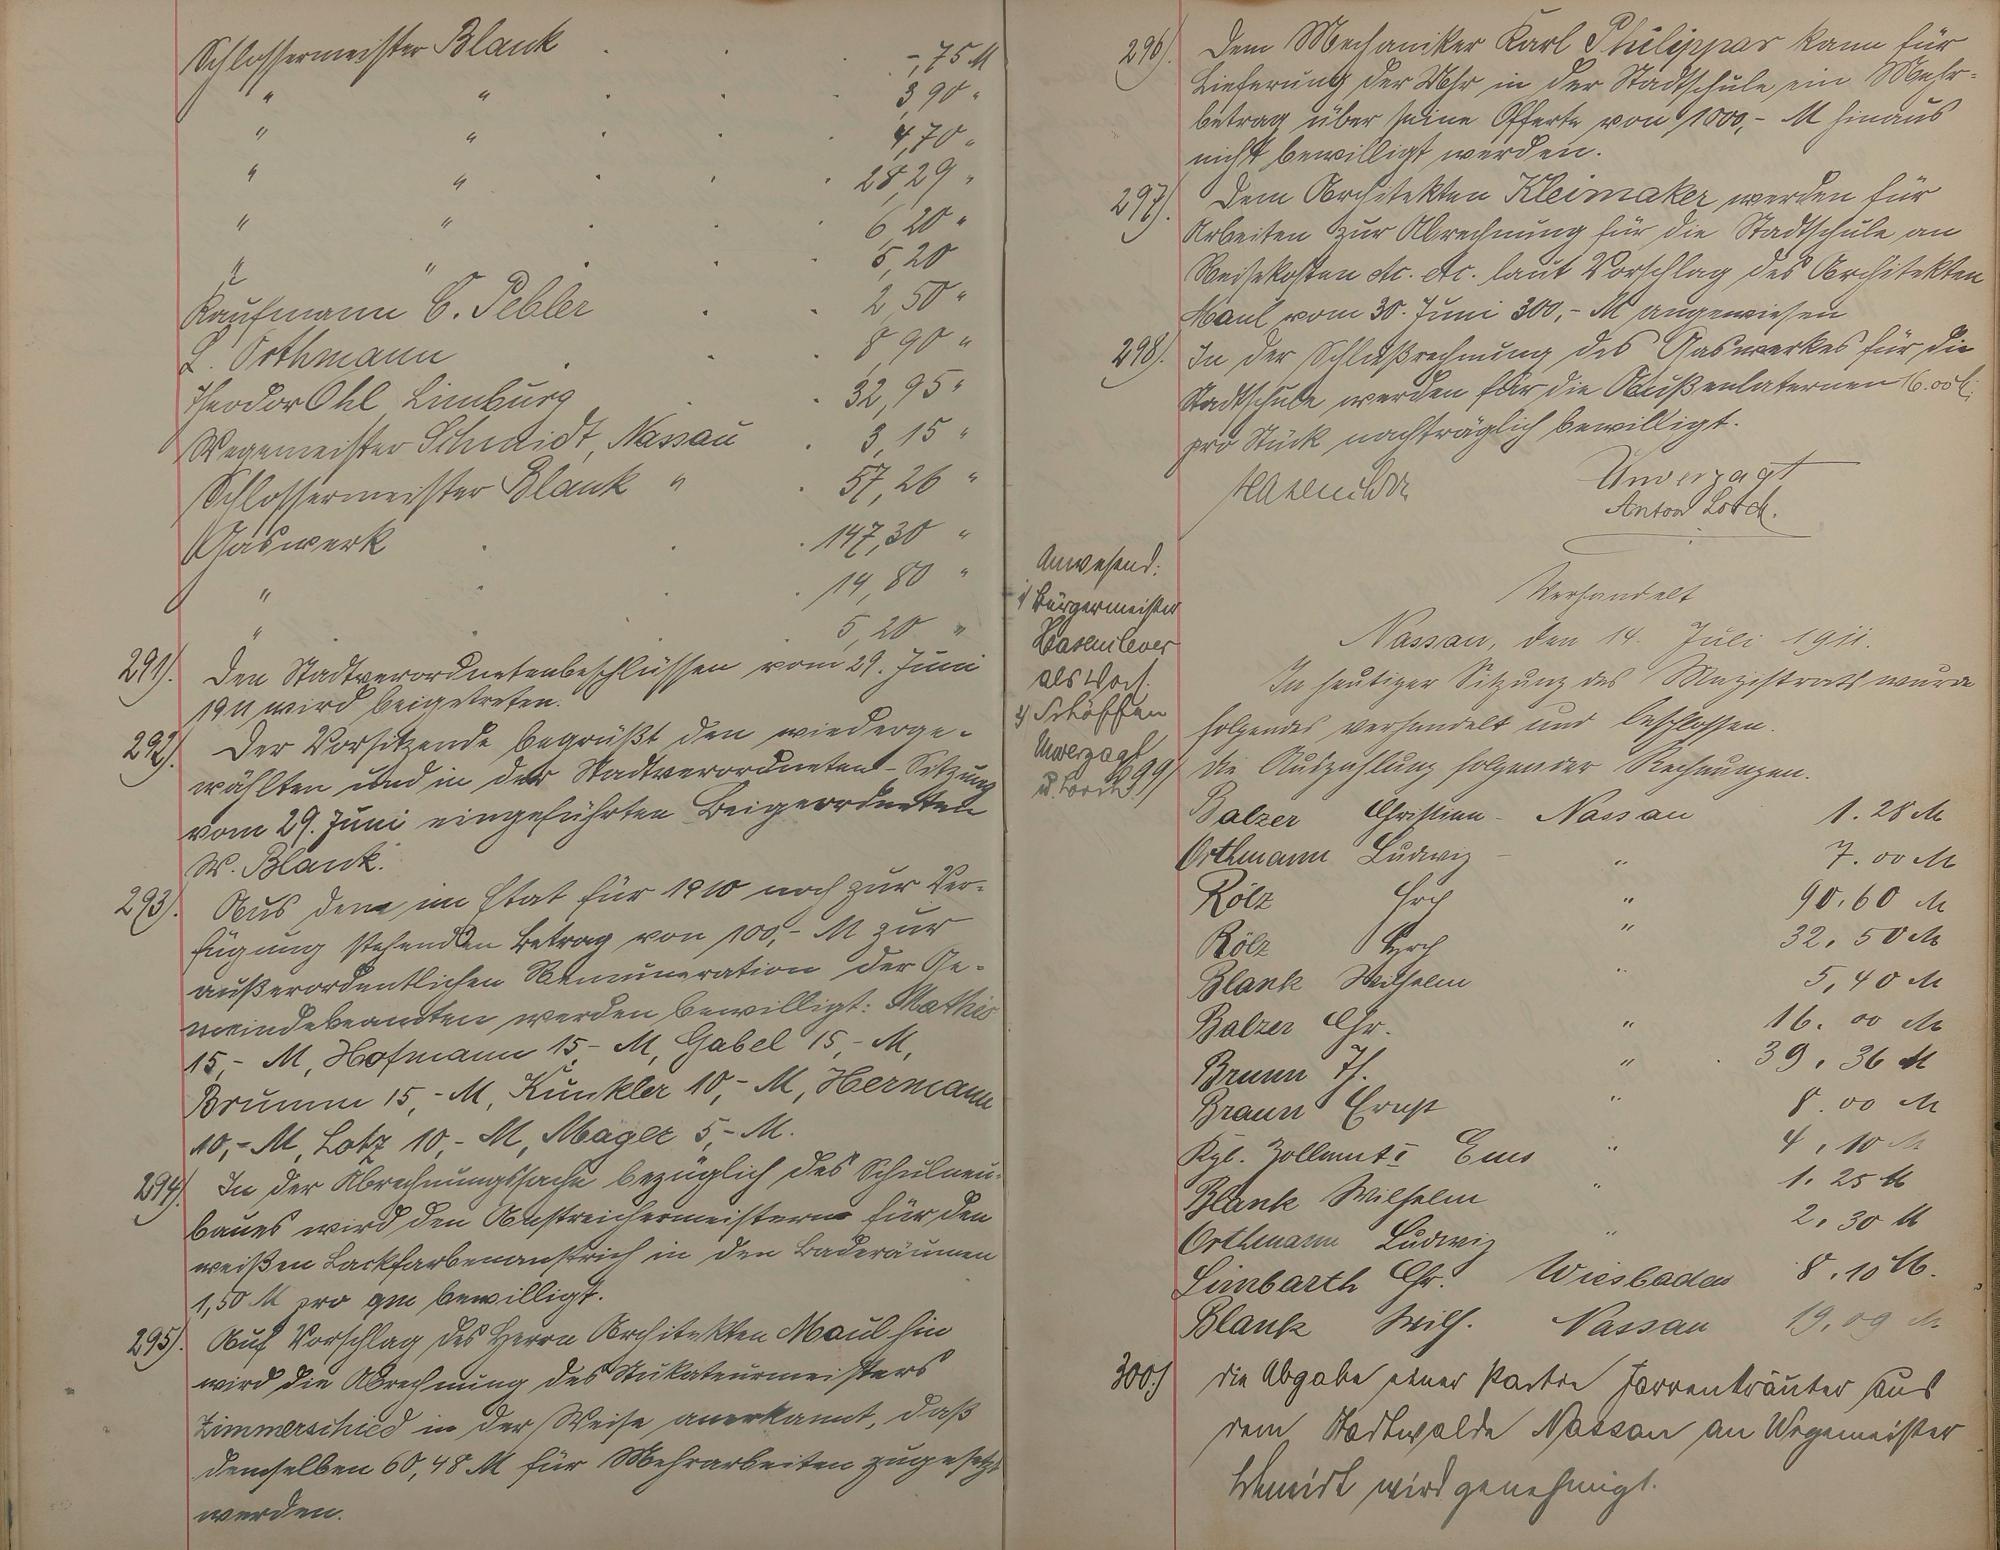 Schlossermeister Blank . . . -,75 M
" " . . . 3,90 "
" " . . . 4,70 "
" " . . . 28,29 "
" " . . . 6,20 "
" " . . . 5,20
Kaufmann C. Pebler . . 2,50 "
L. Orthmann . . . 8,90 "
Theodor Ohl Limburg . . 32,95 "
Wegemeister Schmidt, Nassau . 3,15 "
Schlossermeister Blank " . 57,26 "
Gaswerk . . . 147,30 "
" . . 14,80 "
" . . 5,20 "
291). Den Stadtverordnetenbeschlüssen vom 29. Juni
1911 wird beigetreten.
292). Der Vorsitzende begrüßt den wiederge-
wählten und in der Stadtverordneten-Sitzung
vom 29. Juni eingeführten Beigeordneten
W. Blank.
293). Aus dem im Etat für 1910 noch zur Ver-
fügung stehenden Betrag von 100,- M zur
außerordentlichen Remuneration der Ge-
meindebeamten werden bewilligt: Mathis
15,- M, Hofmann 15,- M, Gabel 15,- M,
Brumm 15,- M, Kunkler 10,- M, Hermann
10,- M, Lotz 10,- M, Mager 5,- M.
294). In der Abrechnungssache bezüglich des Schulneu-
baues wird den Anstreichermeistern für den
weißen Lackfarbenanstrich in den Baderäumen
1,50 M pro qm bewilligt.
295). Auf Vorschlag des Herrn Architekten Maul hin
wird die Abrechnung des Stukateurmeisters
Zimmerschied in der Weise anerkannt, daß
demselben 60,48 M für Mehrarbeiten zugesetzt
werden.
296). Dem Mechaniker Karl Philippar kann für
Lieferung der Uhr in der Stadtschule ein Mehr-
betrag über seine Offerte von 1000,- M hinaus
nicht bewilligt werden.
297). Dem Architekten Kleimaker werden für
Arbeiten zur Abrechnung für die Stadtschule an
Reisekosten etc. etc. laut Vorschlag des Architekten
Maul vom 30. Juni 300,- M angewiesen
298). In der Schlußrechnung des Gaswerkes für die
Stadtschule werden für die Außenlaternen 16.00 M
pro Stück nachträglich bewilligt.
Hasenclever Unverzagt
Anton Lorch.
Anwesend:
1) Bürgermeister
Hasenclever
als Vors.
2) Schöffen
Unverzagt
u. Lorch
Verhandelt
Nassau, den 14. Juli 1911.
In heutiger Sitzung des Magistrats wurde
folgendes verhandelt und beschlossen.
299) Die Auszahlung folgender Rechnungen.
Balzer Christian - Nassau 1.28 M
Orthmann Ludwig - " 7.00 M
Kölz Hrch " 90.60 M
Kölz Hrch " 32.50 M
Blank Wilhelm " 5,40 M
Balzer Chr. " 16.00 M
Brunn Th. " 39.36 M
Braun Ernst " 8.00 M
Kgl. Zollamt I Ems " 4,10 M
Blank Wilhelm " 1.25 M
Orthmann Ludwig " 2.30 M
Limbarth Chr. Wiesbaden 8.10 M.
Blank Wilh. Nassau 19,09 M.
300.) Die Abgabe einer Partie Farrenkräuter aus
dem Stadtwalde Nassau an Wegemeister
Schmidt wird genehmigt.